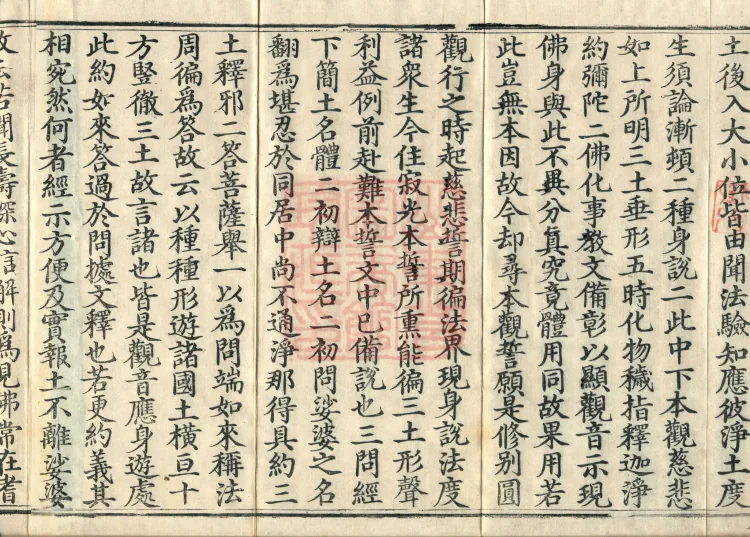 土後入大小位皆由聞法驗知應彼淨土度
生須論漸頓二種身說二此中下本觀慈悲
如上所明三土垂形五時化物穢指釋迦淨
約彌陀二佛化事教文備彰以顯觀音示現
佛身與此不異分真究竟體用同故果用若
此豈無本因故今却尋本觀誓願是修別圓
觀行之時起慈悲誓期徧法界現身說法度
諸眾生今住寂光本誓所熏能徧三土形聲
利益例前赴難本誓文中已備說也三問經
下簡土名體二初辯土名二初問娑婆之名
翻為堪忍於同居中尚不通淨那得具約三
土釋邪二答菩薩舉一以為問端如來稱法
周徧為答故云以種種形遊諸國土橫亘十
方豎徹三土故言諸也皆是觀音應身遊處
此約如來答過於問據文釋也若更約義其
相宛然何者經示方便及實報土不離娑婆
故云若聞長壽深心信解則為見佛常在耆